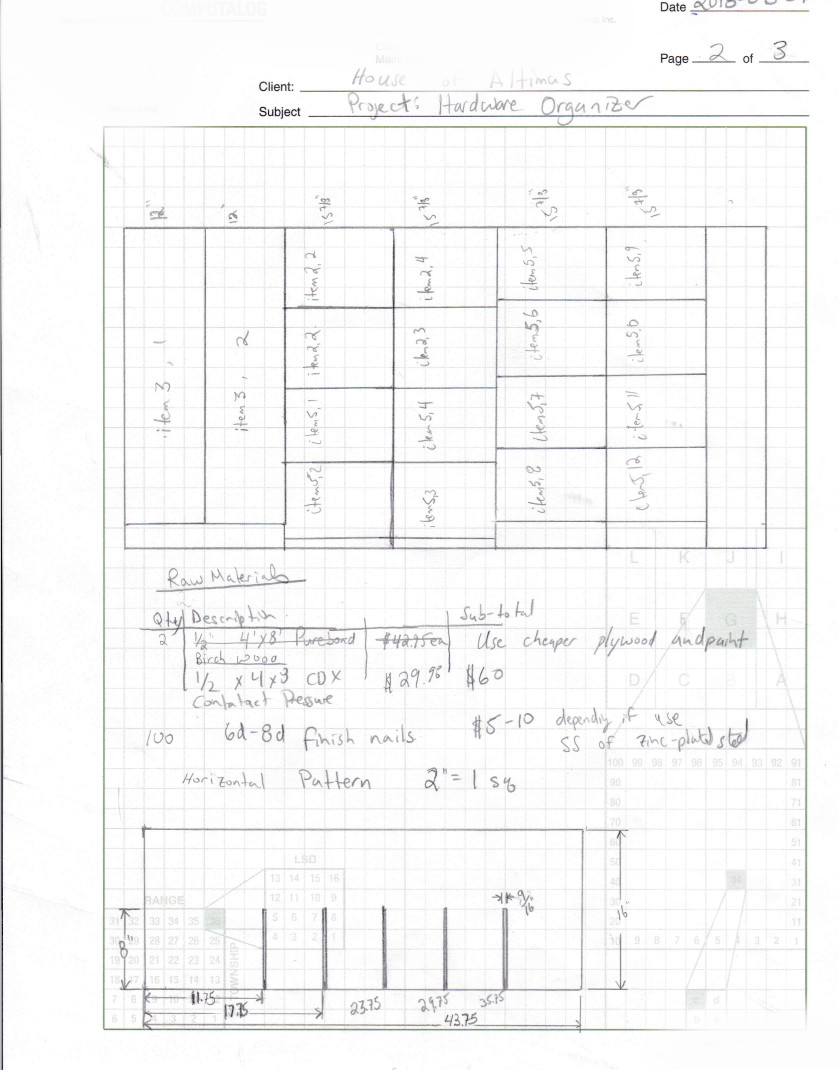 COMPUTALOG
Inc.
Date 2018-03-
Page 2 of 3
Client: House of Altimus
Subject Project: Hardware Organizer
12" 12" 15 7/8" 15 7/8" 15 7/8" 15 7/8"
item 3, 1
item 3, 2
item 2, 2 item 2, 4 item 5, 5 item 5, 9
item 2, 2 item 2, 3 item 5, 6 item 5, 10
item 5, 1 item 5, 4 item 5, 7 item 5, 11
item 5, 2 item 5, 3 item 5, 8 item 5, 12
L K J I
E F G H
D C B A
Raw Materials
Qty Description Sub-total
2 1/2" 4'x8' Purebond $42.75ea Use cheaper plywood and paint
Birch wood
1/2 x 4 x 3 CDX $29.98 $60
Contatact Pessure
100 6d-8d finish nails $5-10 dependiy if use
SS of zinc-plated steel
Horizontal Pattern 2" = 1 sq
100 99 98 97 96 95 94 93 92 91
90 81
80 71
70 61
60 51
50 41
40 31
30 21
20 11
10 9 8 7 6 5 4 3 2 1
LSD
13 14 15 16
12 11 10 9
5 6 7 8
4 3 2 1
RANGE
TOWNSHIP
31 32 33 34 35 36
30 29 28 27 26 25
19 20 21 22 23 24
18 17 16 15 14 13
7 8 9 10
6 5 4 3 2 1
c d
9/16
16"
8"
11.75
17.75 23.75 29.75 35.75
43.75